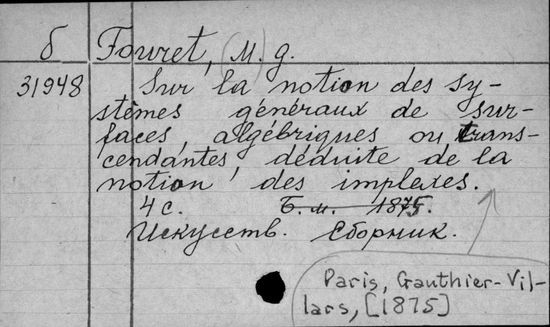 б Fouret, (M.) g.
31948 Sur la notion des sy-
stèmes généraux de sur-
faces, algébriques ou trans-
cendantes, déduite de la
notion des implexes.
4 с. Б. м. 1875.
Искусств. Сборник.
Paris, Gauthier-Vil-
lars, [1875]